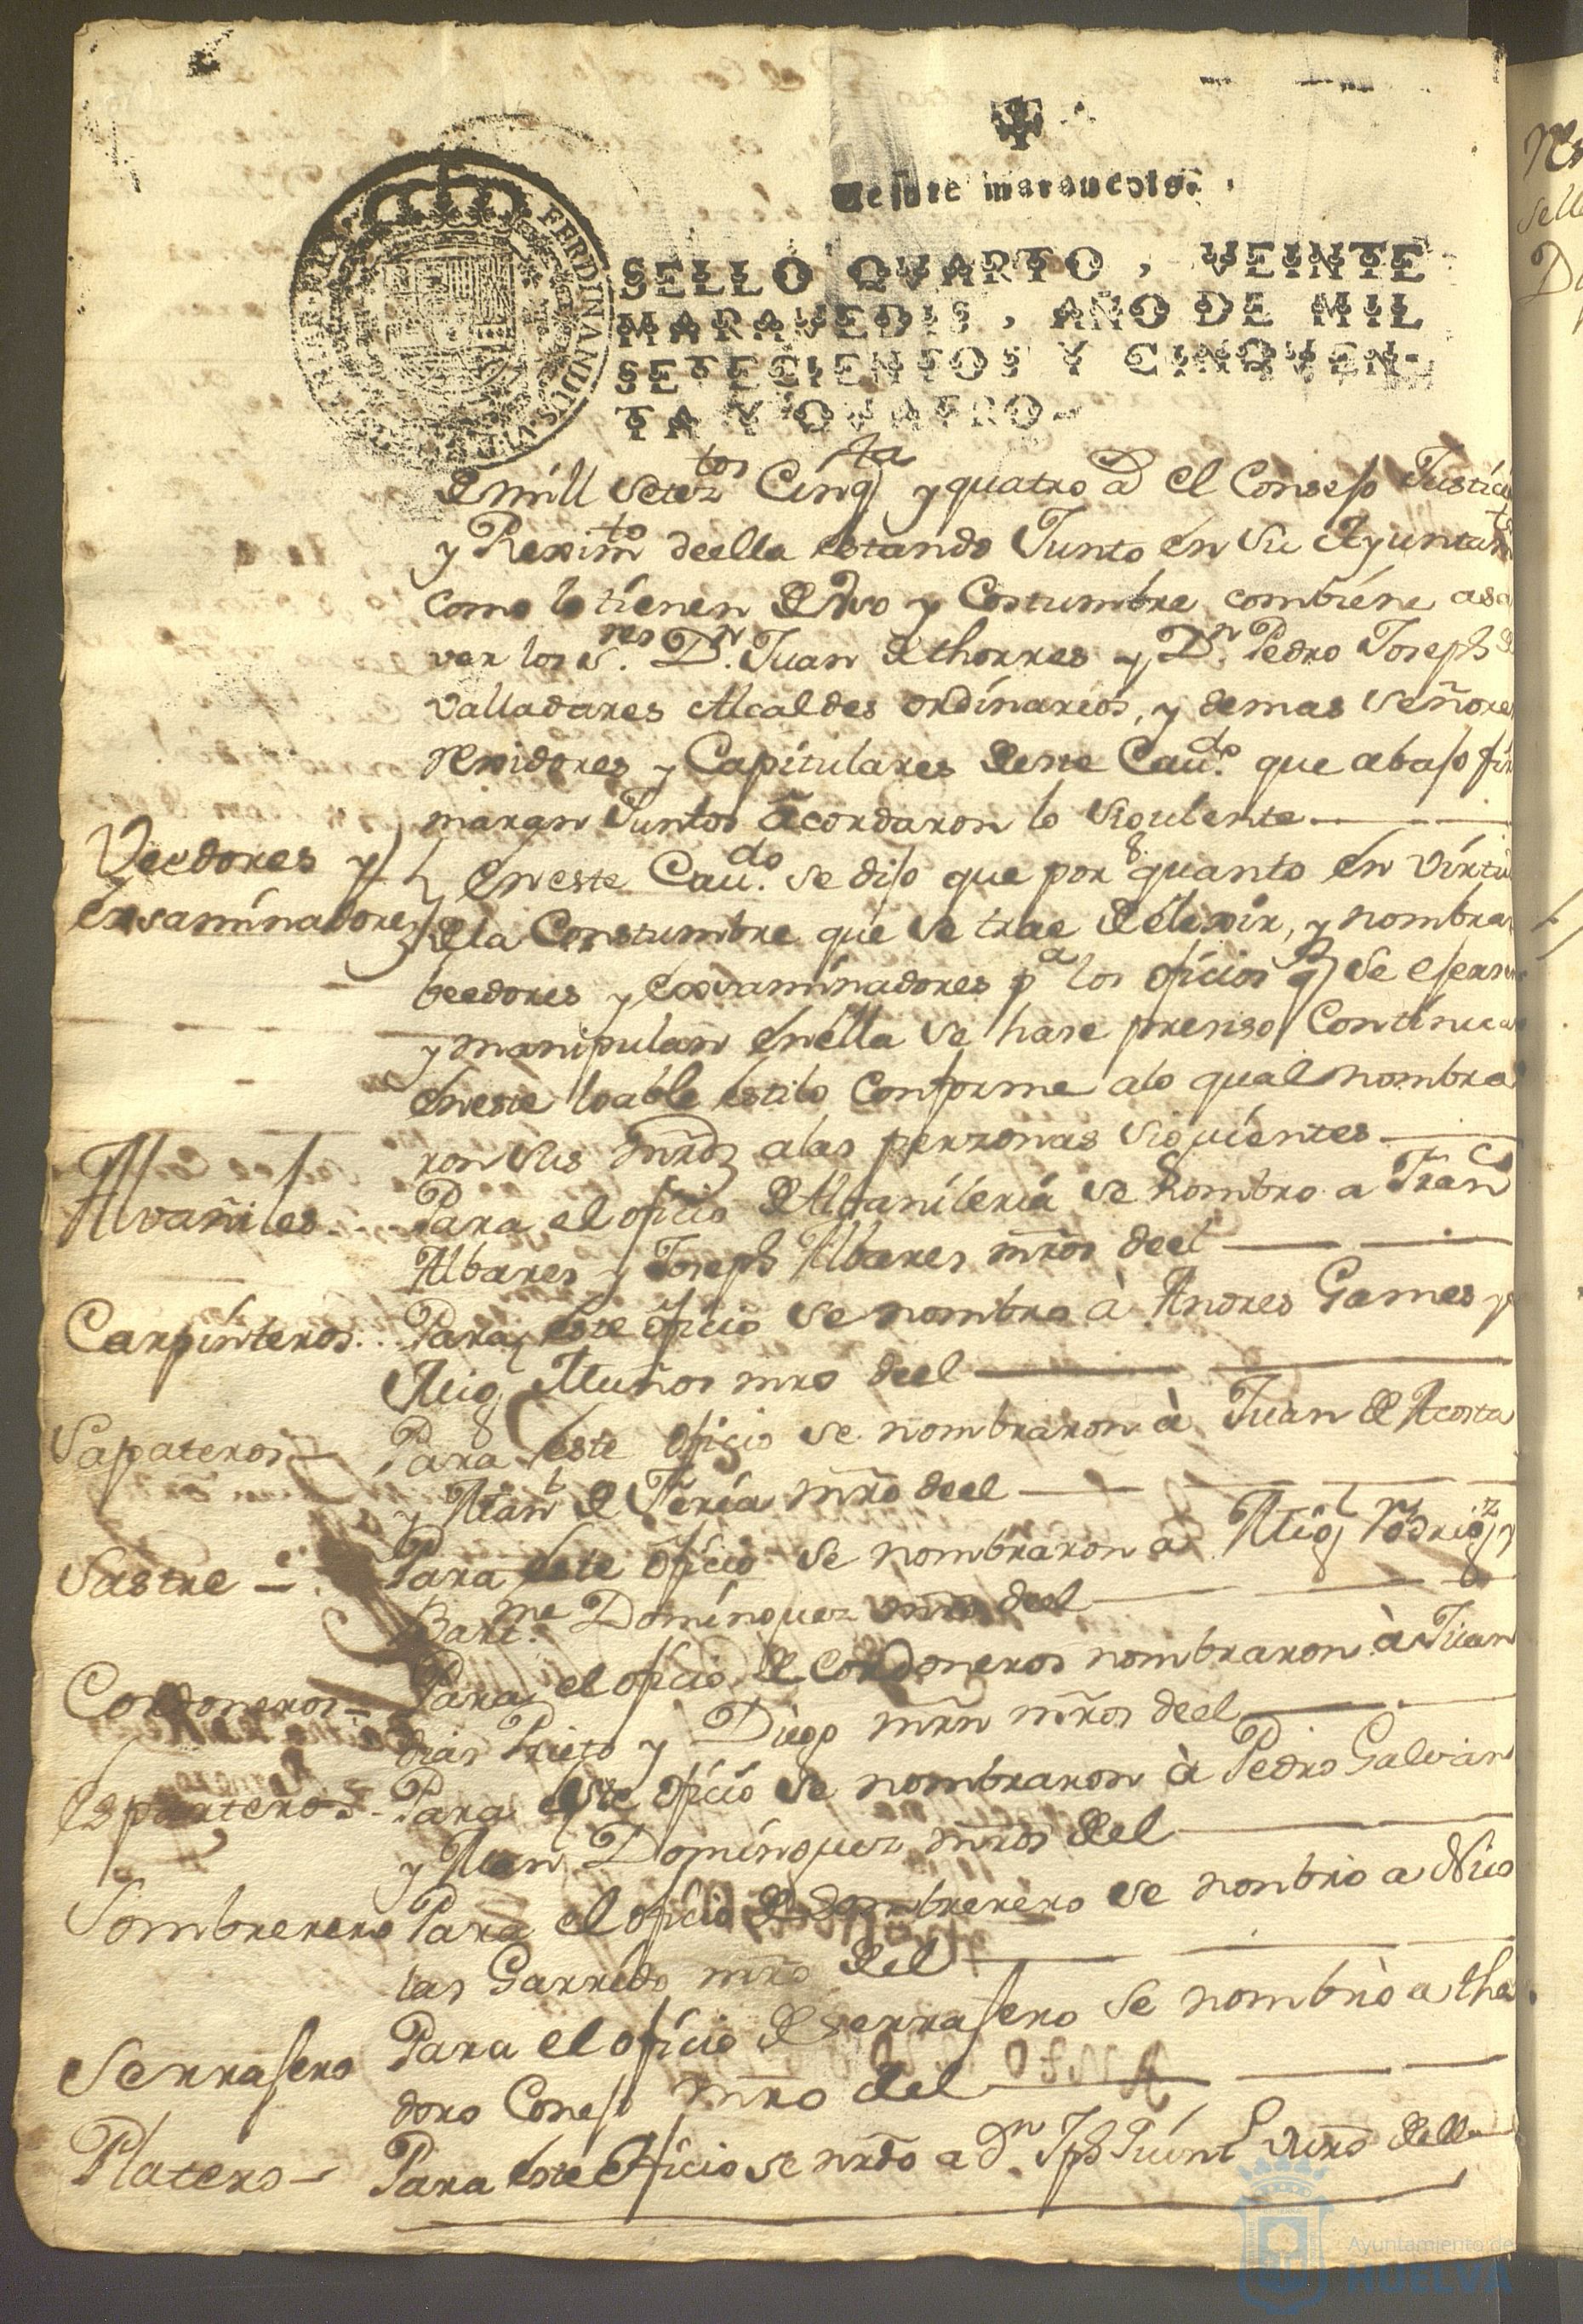 veinte maravedis.
SELLO QVARTO, VEINTE
MARAVEDIS, AÑO DE MIL
SETECIENTOS Y CINQVEN-
TA Y QVATRO-
FERDINANDUS VI
de mill setez.tos Cinq.ta y quatro a.s el Consejo Justicia
y Reximto. deella estando Junto en su Ayuntam.to
como lo tienen de uso y Costumbre combiene asa
ver los s.res D.n Juan de thorres y D.n Pedro Joseph de
valladares Alcaldes ordinarios, y demas señores
rexidores y Capitulares deste Cau.do que abajo fir
maran Juntos acordaron lo siguiente
Veedores y
exsaminadores
en este Cau.do se dijo que por quanto en virtu
de la Constumbre que se trae de elexir, y nombrar
beedores y exsaminadores p.a los oficios q se ejersen
y manipulan en ella se hase presiso Continuar
en este loable estilo Conforme alo qual nombra
ron sus mrds alas perzonas siguientes
Alvañiles
Para el oficio de Albanileria se nombro a Fran.co
Albares y Joseph Albares mros deel
Carpinteros
Para este oficio se nombro à Andres Games y
Mig.l Muños mro deel
Sapateros
Para este oficio se nombraron à Juan de Acosta
y Man.l de Feria mro deel
Sastre
Para este oficio se nombraron a Mig.l Rodrig.z y
Bart.me Dominguez mros deel
Cordoneros
Para el oficio de Cordoneros nombraron à Juan
dias Prieto y Diego mrn mros deel
esparteros
Para este oficio se nombraron à Pedro Galvan
y Juan Dominguez mros del
Sombrerero
Para el oficio de Sombrerero se nombro a Nico
las Garrido mro del
Serrajero
Para el oficio de serrajero se nombrò a theo
doro Conejo mro del
Platero
Para este oficio se nrdo a D.n Jph deella
Ayuntamiento de
HUELVA